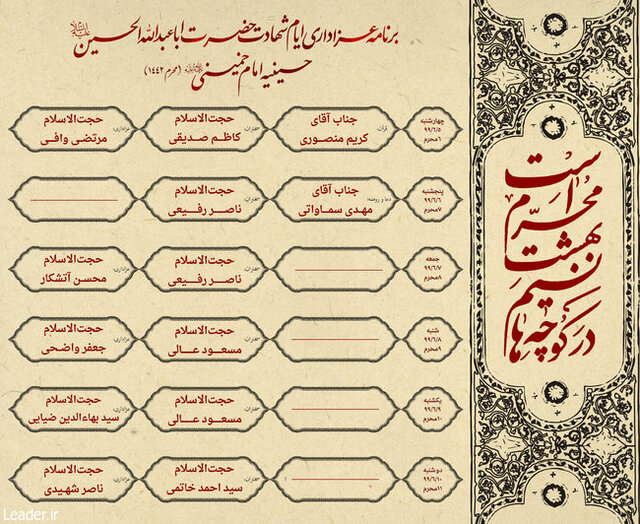 برنامه عزاداری ایام شهادت حضرت اباعبدالله الحسین
حسینیه امام خمینی (محرم ۱۴۴۲)
چهارشنبه
۹۹/۶/۵
۶محرم
قرآن:
جناب آقای
کریم منصوری
سخنران:
حجت‌الاسلام
کاظم صدیقی
عزاداری:
حجت‌الاسلام
مرتضی وافی
پنجشنبه
۹۹/۶/۶
۷محرم
دعا و روضه:
جناب آقای
مهدی سماواتی
سخنران:
حجت‌الاسلام
ناصر رفیعی
جمعه
۹۹/۶/۷
۸محرم
سخنران:
حجت‌الاسلام
ناصر رفیعی
عزاداری:
حجت‌الاسلام
محسن آتشکار
شنبه
۹۹/۶/۸
۹محرم
سخنران:
حجت‌الاسلام
مسعود عالی
عزاداری:
حجت‌الاسلام
جعفر واضحی
یکشنبه
۹۹/۶/۹
۱۰محرم
سخنران:
حجت‌الاسلام
مسعود عالی
عزاداری:
حجت‌الاسلام
سید بهاءالدین ضیایی
دوشنبه
۹۹/۶/۱۰
۱۱محرم
سخنران:
حجت‌الاسلام
سید احمد خاتمی
عزاداری:
حجت‌الاسلام
ناصر شهیدی
در کوچه‌ها
نسیم
بهشت
محرّم
است
Leader.ir